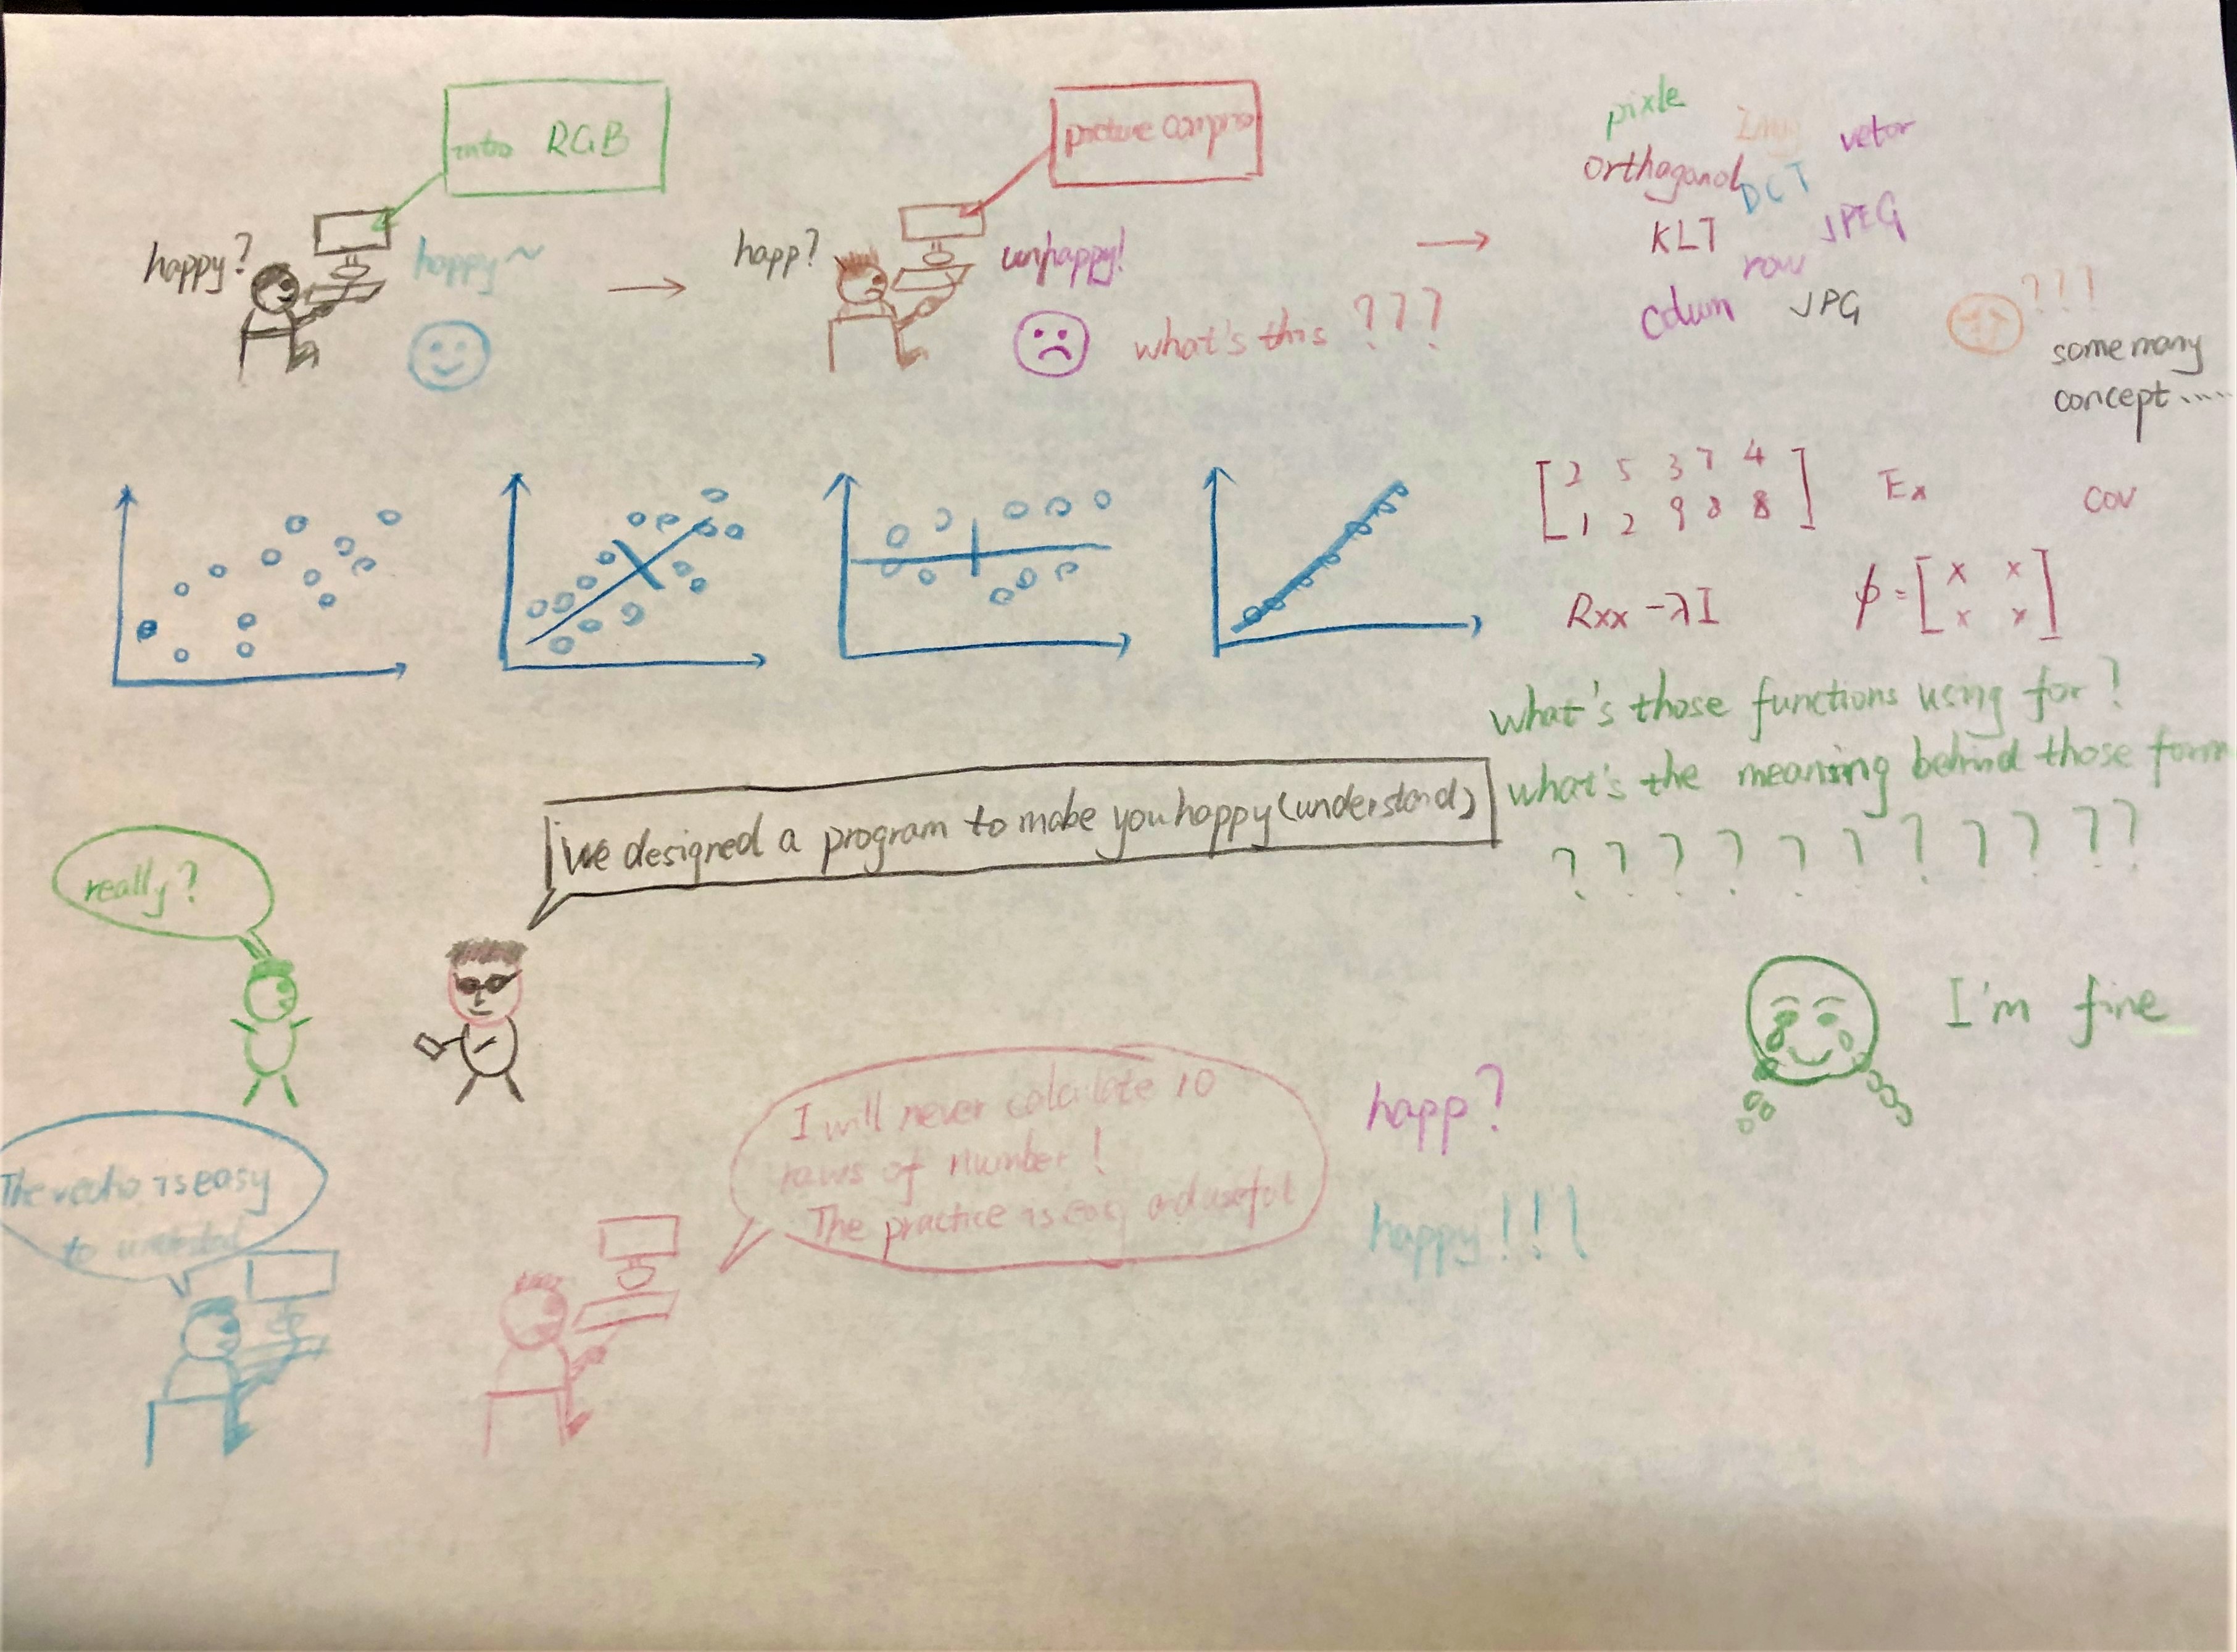 intro RGB
happy?
happy~
picture
happ?
unhappy!
what's this ???
pixle
vetor
orthoganol
DCT
KLT
JPEG
row
colum
JPG
???
some many
concept.....
[2 5 3 7 4
1 2 9 8 8]
Ex
cov
Rxx -λI
ϕ=[x x
x x]
what's those functions using for?
what's the meaning behind those form
???????????
we designed a program to make you happy(understand)
really?
I'm fine
I will never calculate 10
raws of number!
The practice is easy and useful
happ?
happy!!!
The is easy
to